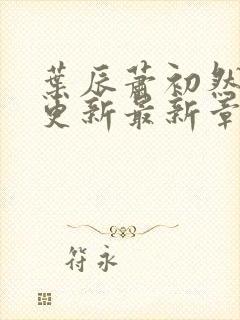 葉辰蕭初然
更新最新章
符永